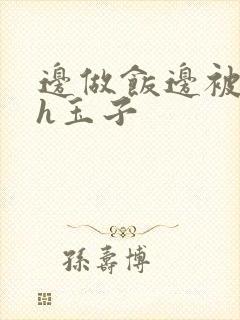 邊做飯邊被
h玉子
孫壽博